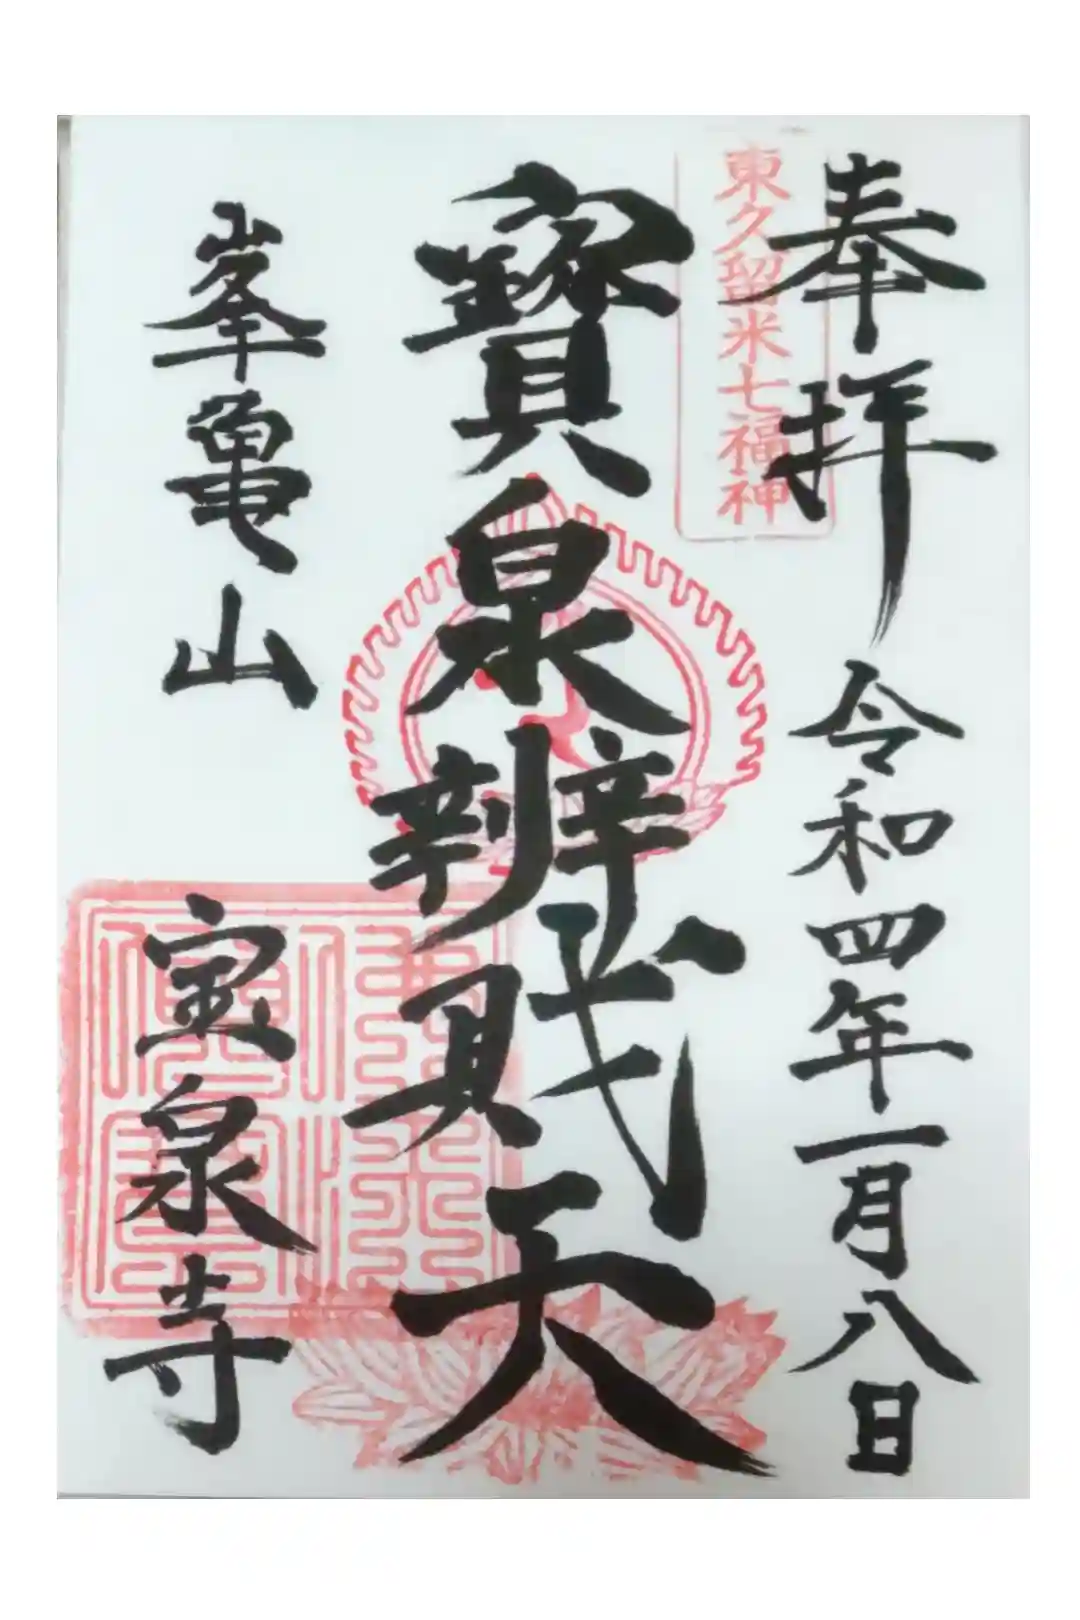 奉拝 令和四年一月八日
東久留米七福神
寳泉辨財天
峯亀山 宝泉寺